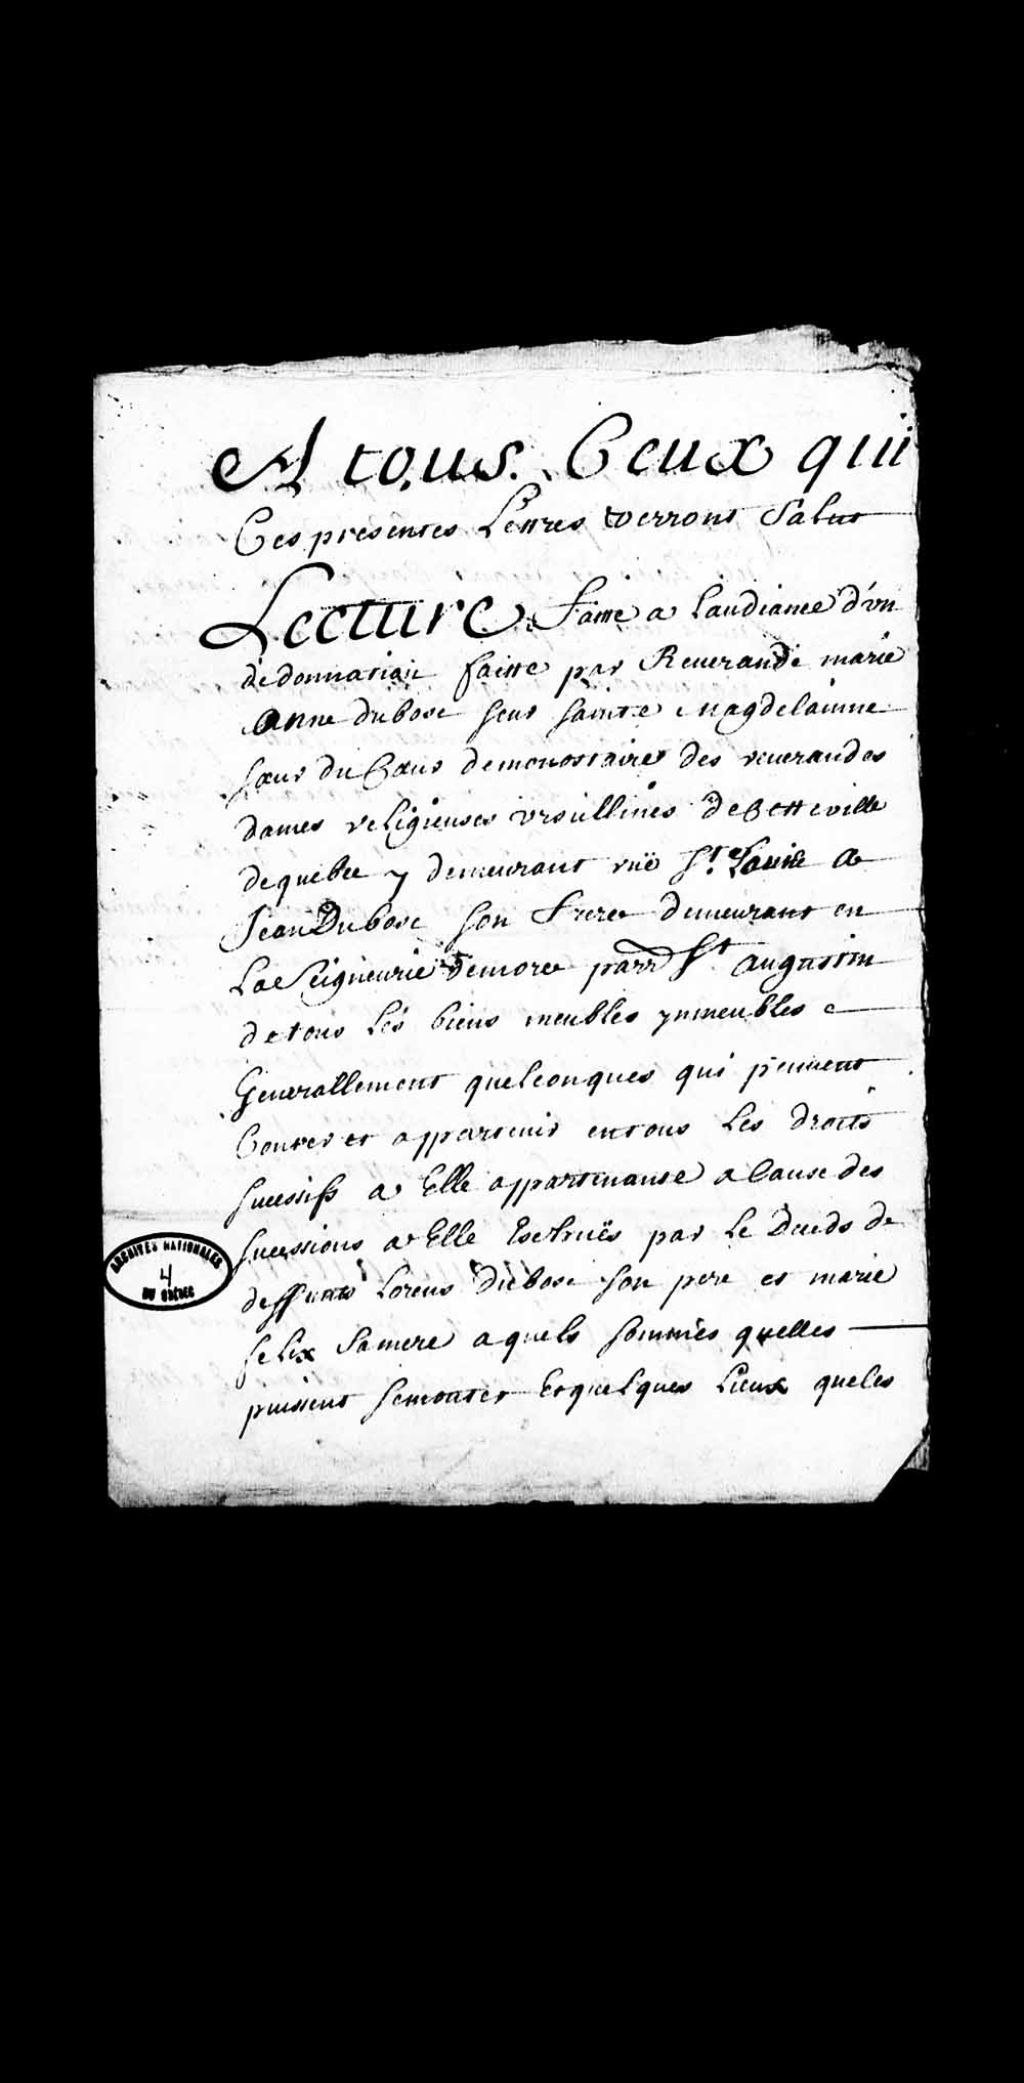 A tous Ceux qui
Ces presentes Lettres verront Salut
Lecture faitte a laudiance d'vn
dedonnation faitte par Reverande marie
Anne dubosc seur sainte Magdelainne
sœur du Cœur demonostaire des reuerandes
dames religieuses vrsullines de Cette ville
dequebec y demeurant rue St. Louis a
Jean Dubosc son frere demeurant en
La Seigneurie demore parr St augustin
detous les biens meubles ynmeubles e
Generallement quelconques qui peuuent
Conter et appartenir entous les droits
sucessifs a Elle appartenanse a Cause des
sucessions a Elle Escheues par le Deceds de
deffunts Lorens dubosc son pere et marie
felix samere aquels sommes quelles
puissent semonter Et quelques lieux queles
ARCHIVES NATIONALES
4
DU QUÉBEC